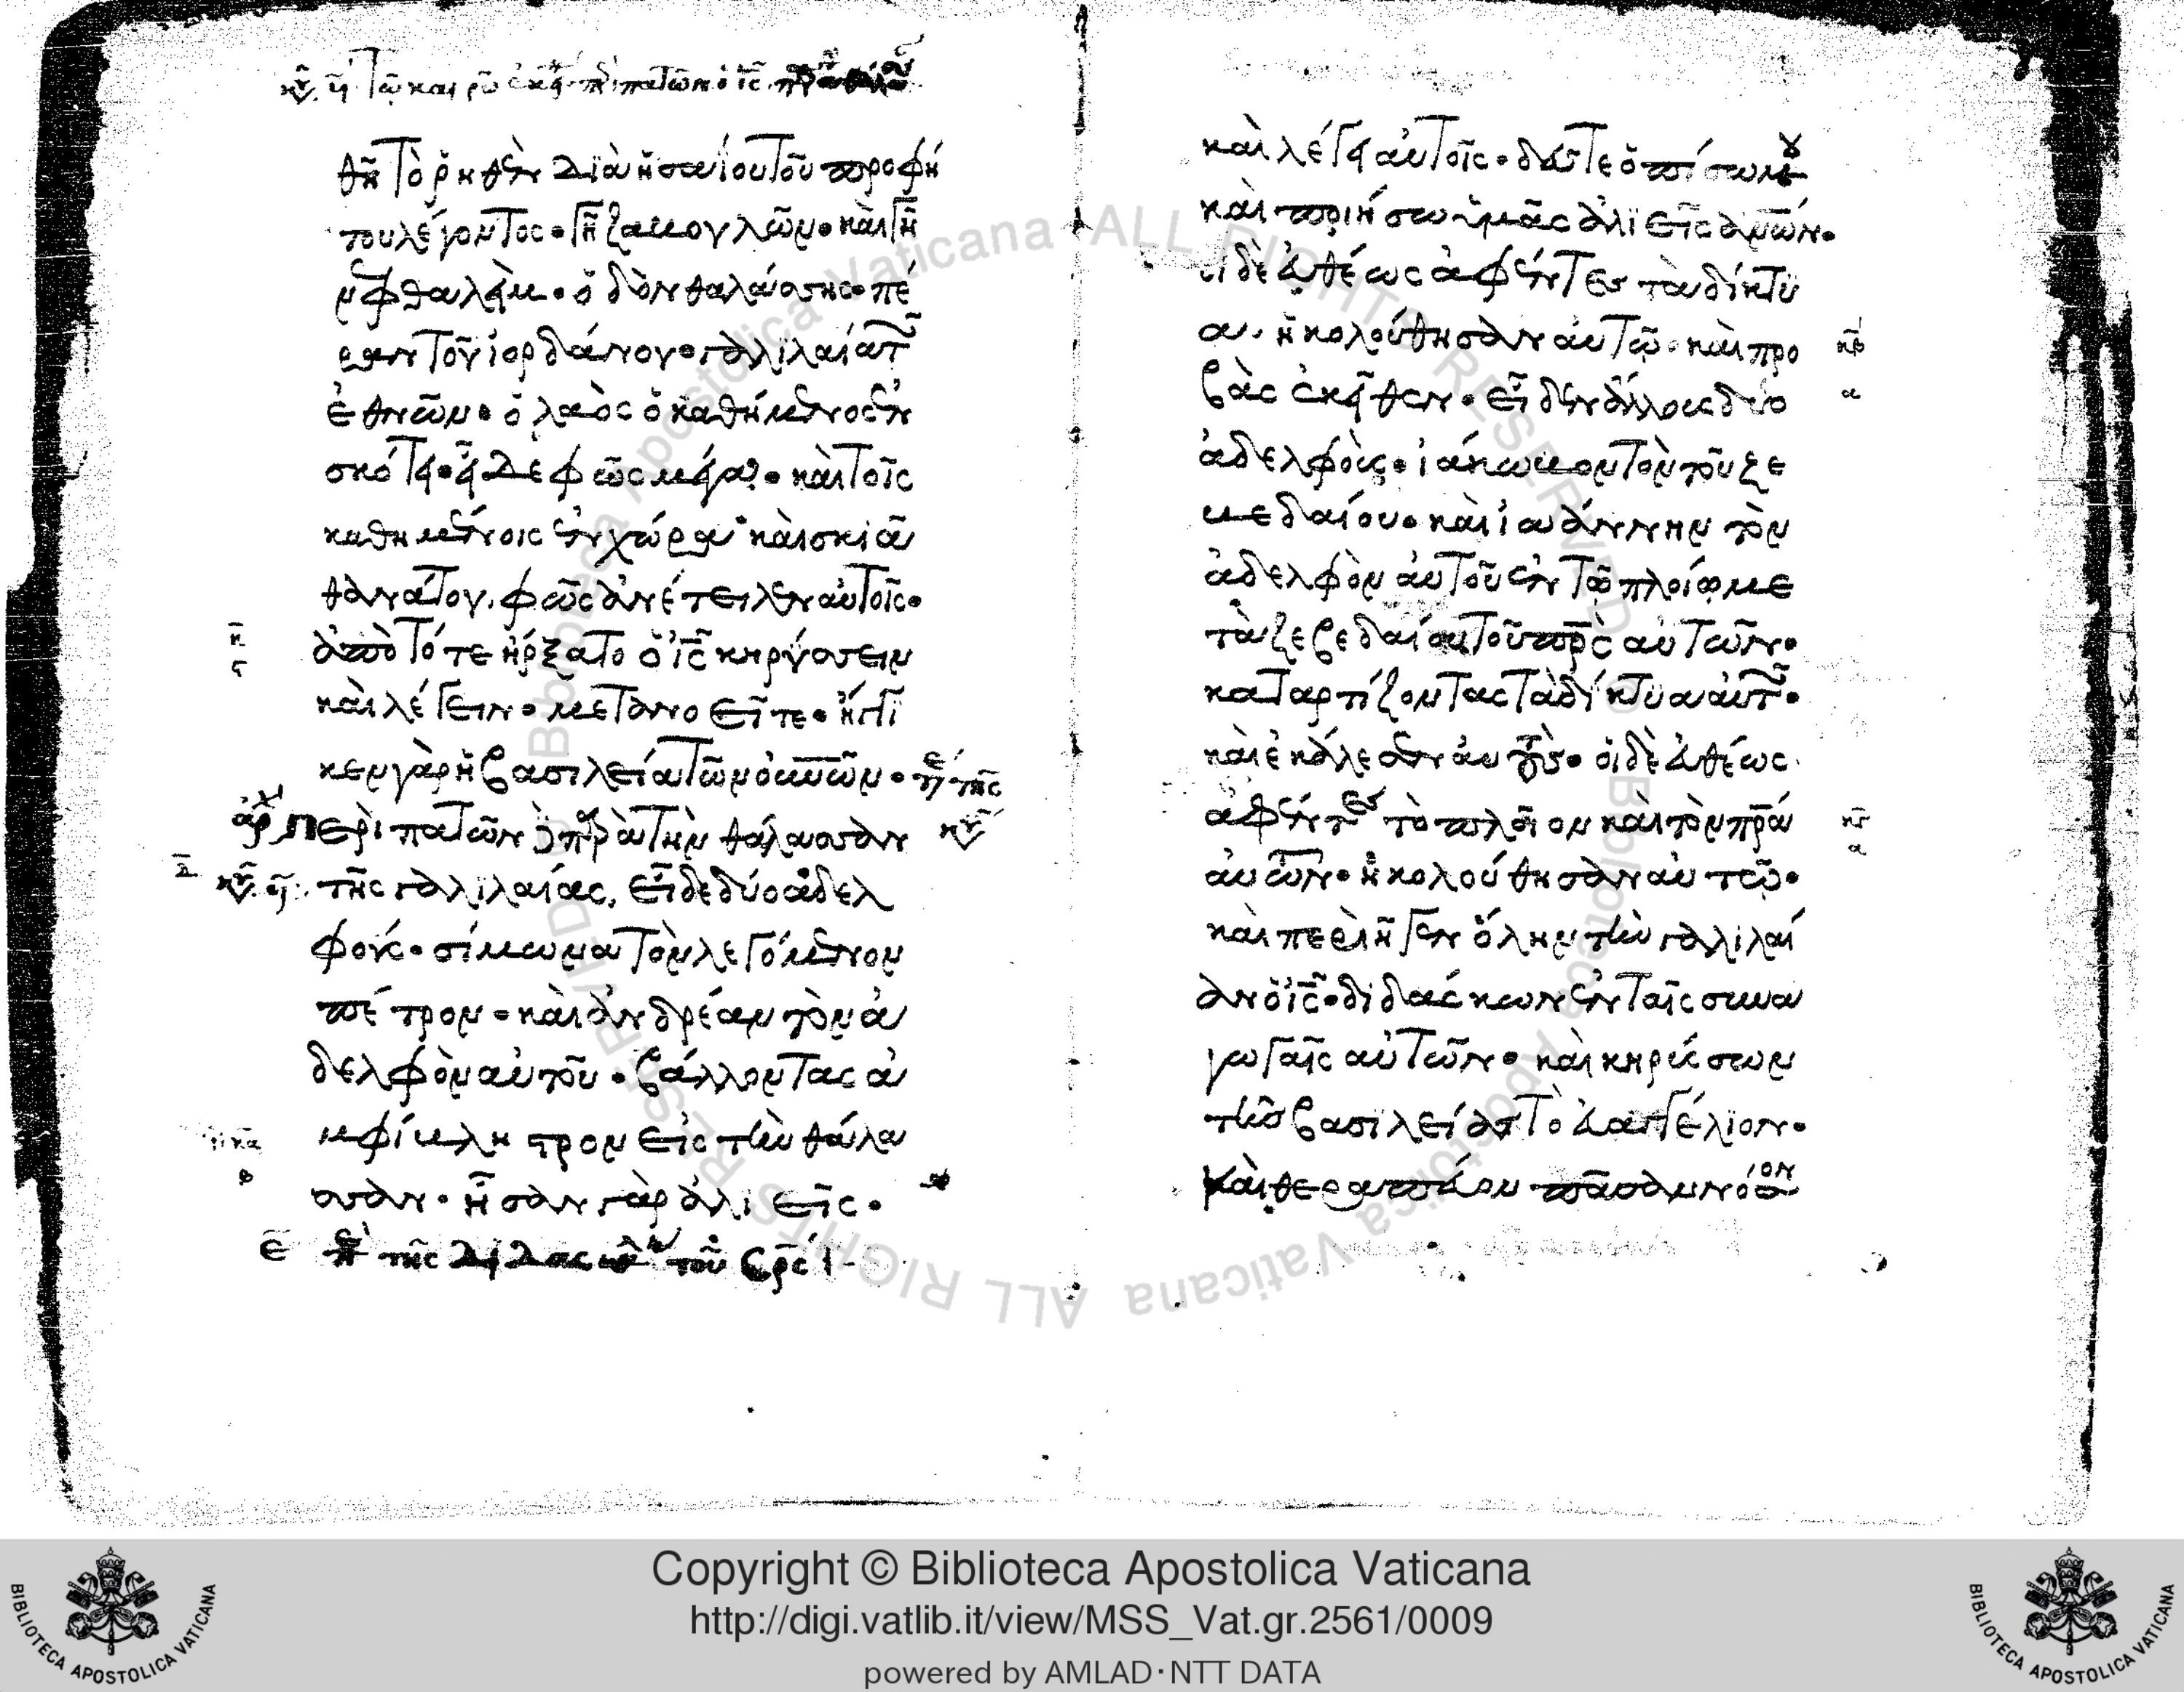 κυ. γ τῶ καιρῶ ἐκεί. περιπατῶν ὁ ις
θῆ τὸ ῥηθὲν διὰ ἡσαΐου τοῦ προφή
του λέγοντος· γῆ ζαβουλῶν· καὶ γῆ
νεφθαλὴμ· ὁδὸν θαλάσσης· πέ
ραν τοῦ ἰορδάνου· γαλιλαία τῶν
ἐθνῶν· ὁ λαὸς ὁ καθήμενος ἐν
σκότει· εἶδε φῶς μέγα· καὶ τοῖς
καθημένοις ἐν χώρα καὶ σκιᾶ
θανάτου, φῶς ἀνέτειλεν αὐτοῖς·
ἀπὸ τότε ἤρξατο ὁ ις κηρύσσειν
καὶ λέγειν· μετανοεῖτε· ἤγγι
κεν γὰρ ἡ βασιλεία τῶν οὐνῶν·
Περιπατῶν ὁ ις παρὰ τὴν θάλασσαν
τῆς γαλιλαίας, εἶδε δύο ἀδελ
φούς· σίμωνα τὸν λεγόμενον
πέτρον· καὶ ἀνδρέαν τὸν ἀ
δελφὸν αὐτοῦ· βάλλοντας ἀ
μφίβληστρον εἰς τὴν θάλα
σσαν· ἦσαν γὰρ ἁλιεῖς·
καὶ λέγει αὐτοῖς· δεῦτε ὀπίσω μου
καὶ ποιήσω ὑμᾶς ἁλιεῖς ἀνων·
οἱ δὲ εὐθέως ἀφέντες τὰ δίκτυ
α, ἠκολούθησαν αὐτῶ· καὶ προ
βὰς ἐκεῖθεν· εἶδεν ἄλλους δύο
ἀδελφοὺς· ἰάκωβον τὸν τοῦ ζε
βεδαίου· καὶ ἰωάννην τὸν
ἀδελφὸν αὐτοῦ ἐν τῶ πλοίω με
τὰ ζεβεδαίου τοῦ πρς αὐτῶν·
καταρτίζοντας τὰ δίκτυα αὐτῶν·
καὶ ἐκάλεσεν αὐτούς· οἱ δὲ εὐθέως
ἀφέντες τὸ πλοῖον καὶ τὸν πρα
αὐτῶν· ἠκολούθησαν αὐτῶ·
καὶ περιῆγεν ὅλην τὴν γαλιλαί
αν ὁ ις· διδάσκων ἐν ταῖς συνα
γωγαῖς αὐτῶν· καὶ κηρύσσων
τῆς βασιλείας τὸ εὐαγγέλιον·
καὶ θεραπεύων πᾶσαν νόσον
Copyright © Biblioteca Apostolica Vaticana
http://digi.vatlib.it/view/MSS_Vat.gr.2561/0009
powered by AMLAD·NTT DATA
BIBLIOTECA APOSTOLICA VATICANA
BIBLIOTECA APOSTOLICA VATICANA